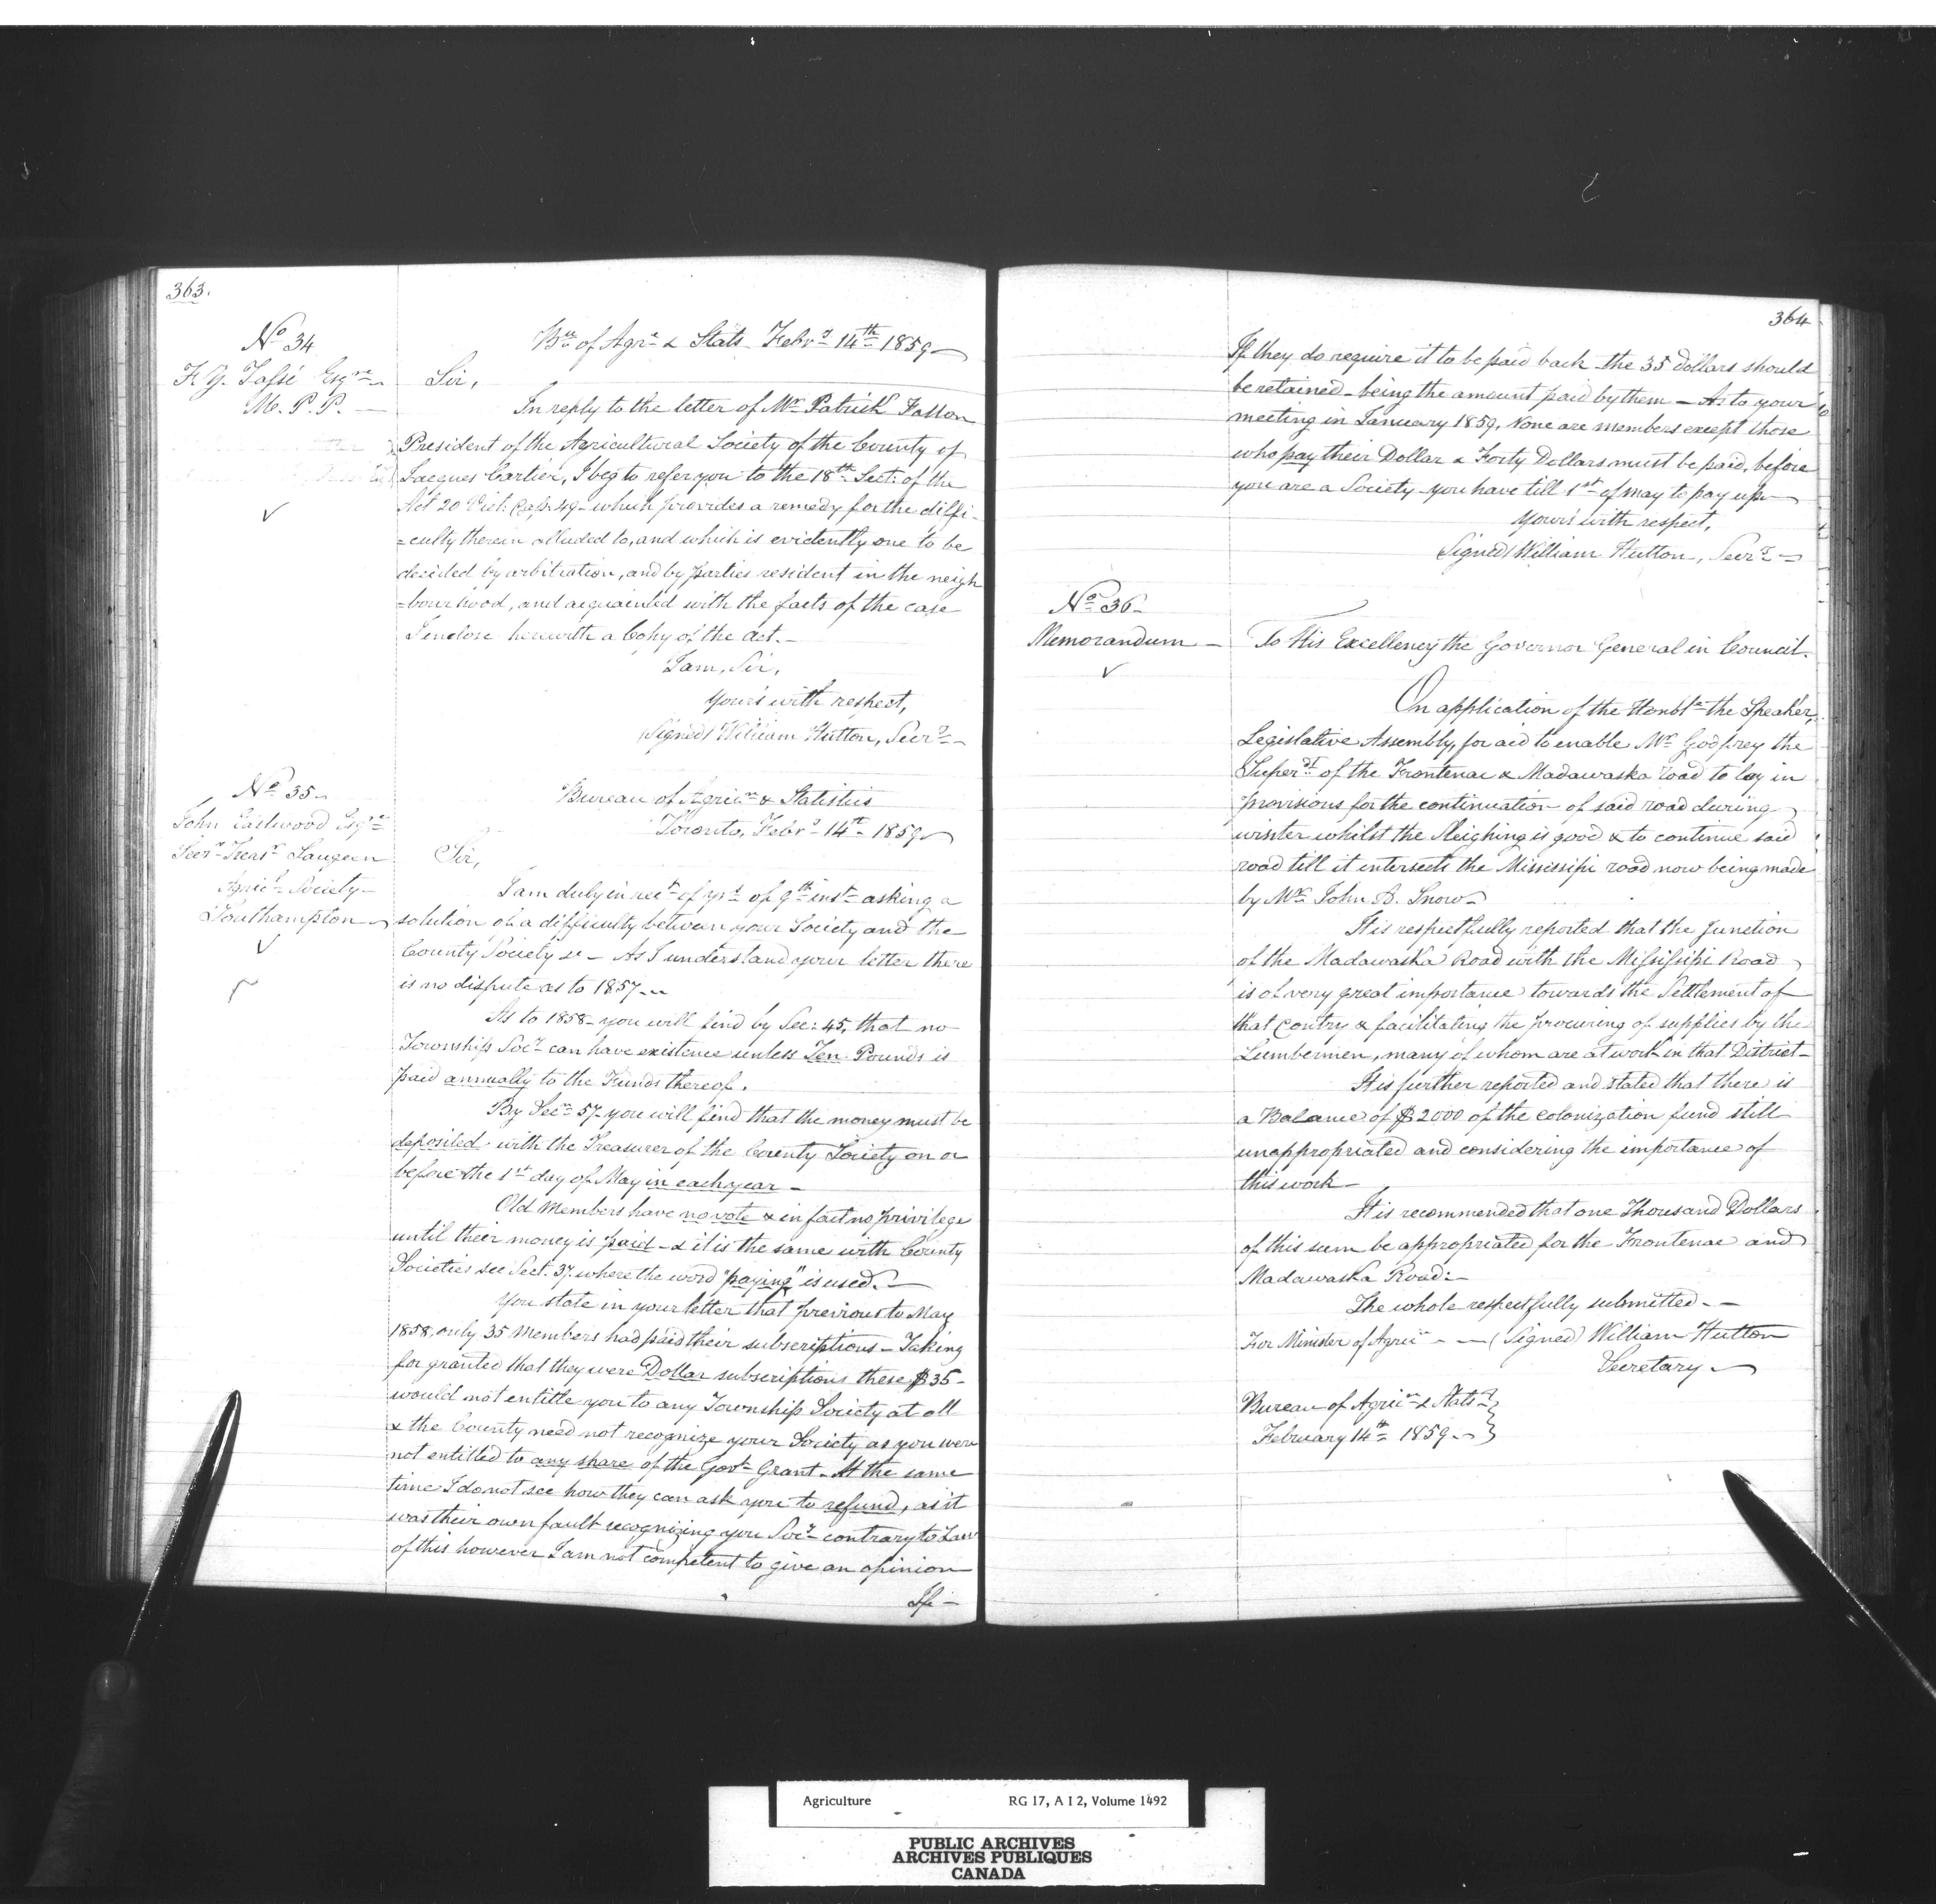 363.
No 34
F. Z. Tassé Esqre
M. P. P. —
Bu of Agre & Stats Febry 14th 1859
Sir,
In reply to the letter of Mr Patrick Fallon
President of the Agricultural Society of the County of
Jacques Cartier, I beg to refer you to the 18th Sect: of the
Act 20 Vict: Cap: 49 - which provides a remedy for the diffi-
=culty therein alluded to, and which is evidently one to be
decided by arbitration, and by parties resident in the neigh
=bourhood, and acquainted with the facts of the case
I enclose herewith a Copy of the Act. -
I am, Sir,
Yours with respect,
(Signed) William Hutton, Secry -
No 35
John Eastwood Esqre
Secy-Treasr Saugeen
Agricl Society -
Southampton
Bureau of Agricn & Statistics
Toronto, Febry 14th 1859
Sir,
I am duly in rect of yrs of 9th inst asking a
solution of a difficulty between your Society and the
County Society &c - As I understand your letter there
is no dispute as to 1857 -
As to 1858 - you will find by Sec: 45, that no
Township Socy can have existence unless Ten Pounds is
paid annually to the Funds thereof.
By Secn 57 you will find that the money must be
deposited with the Treasurer of the County Society on or
before the 1st day of May in each year -
Old Members have no vote & in fact no privilege
until their money is paid - & it is the same with County
Societies see Sect. 37. where the word "paying" is used. -
You state in your letter that previous to May
1858, only 35 Members had paid their subscriptions - Taking
for granted that they were Dollar subscriptions these $35 -
would not entitle you to any Township Society at all
& the County need not recognize your Society as you were
not entitled to any share of the Govt Grant - At the same
time I do not see how they can ask you to refund, as it
was their own fault recognizing you Socy contrary to Law
of this however I am not competent to give an opinion
If -
364
If they do require it to be paid back the 35 dollars should
be retained - being the amount paid by them - As to your
meeting in January 1859, None are members except those
who pay their Dollar & Forty Dollars must be paid, before
you are a Society - you have till 1st of may to pay up -
Yours with respect,
(Signed) William Hutton, Secry -
No 36 -
Memorandum -
To His Excellency the Governor General in Council.
On application of the Honble the Speaker,
Legislative Assembly, for aid to enable Mr Godfrey the
Superdt of the Frontenac & Madawaska road to lay in
provisions for the continuation of said road during
winter whilst the sleighing is good & to continue said
road till it intersects the Mississipi road now being made
by Mr John A. Snow -
It is respectfully reported that the junction
of the Madawaska Road with the Mississipi Road
is of very great importance towards the Settlement of
that contry & facilitating the procuring of supplies by the
Lumbermen, many of whom are at work in that District -
It is further reported and stated that there is
a Balance of $2000 of the colonization fund still
unappropriated and considering the importance of
this work -
It is recommended that one Thousand Dollars
of this sum be appropriated for the Frontenac and
Madawaska Road: -
The whole respectfully submitted. -
For Minister of Agricn - - (Signed) William Hutton
Secretary -
Bureau of Agricn & Stats
February 14th 1859 -
Agriculture RG 17, A I 2, Volume 1492
PUBLIC ARCHIVES
ARCHIVES PUBLIQUES
CANADA